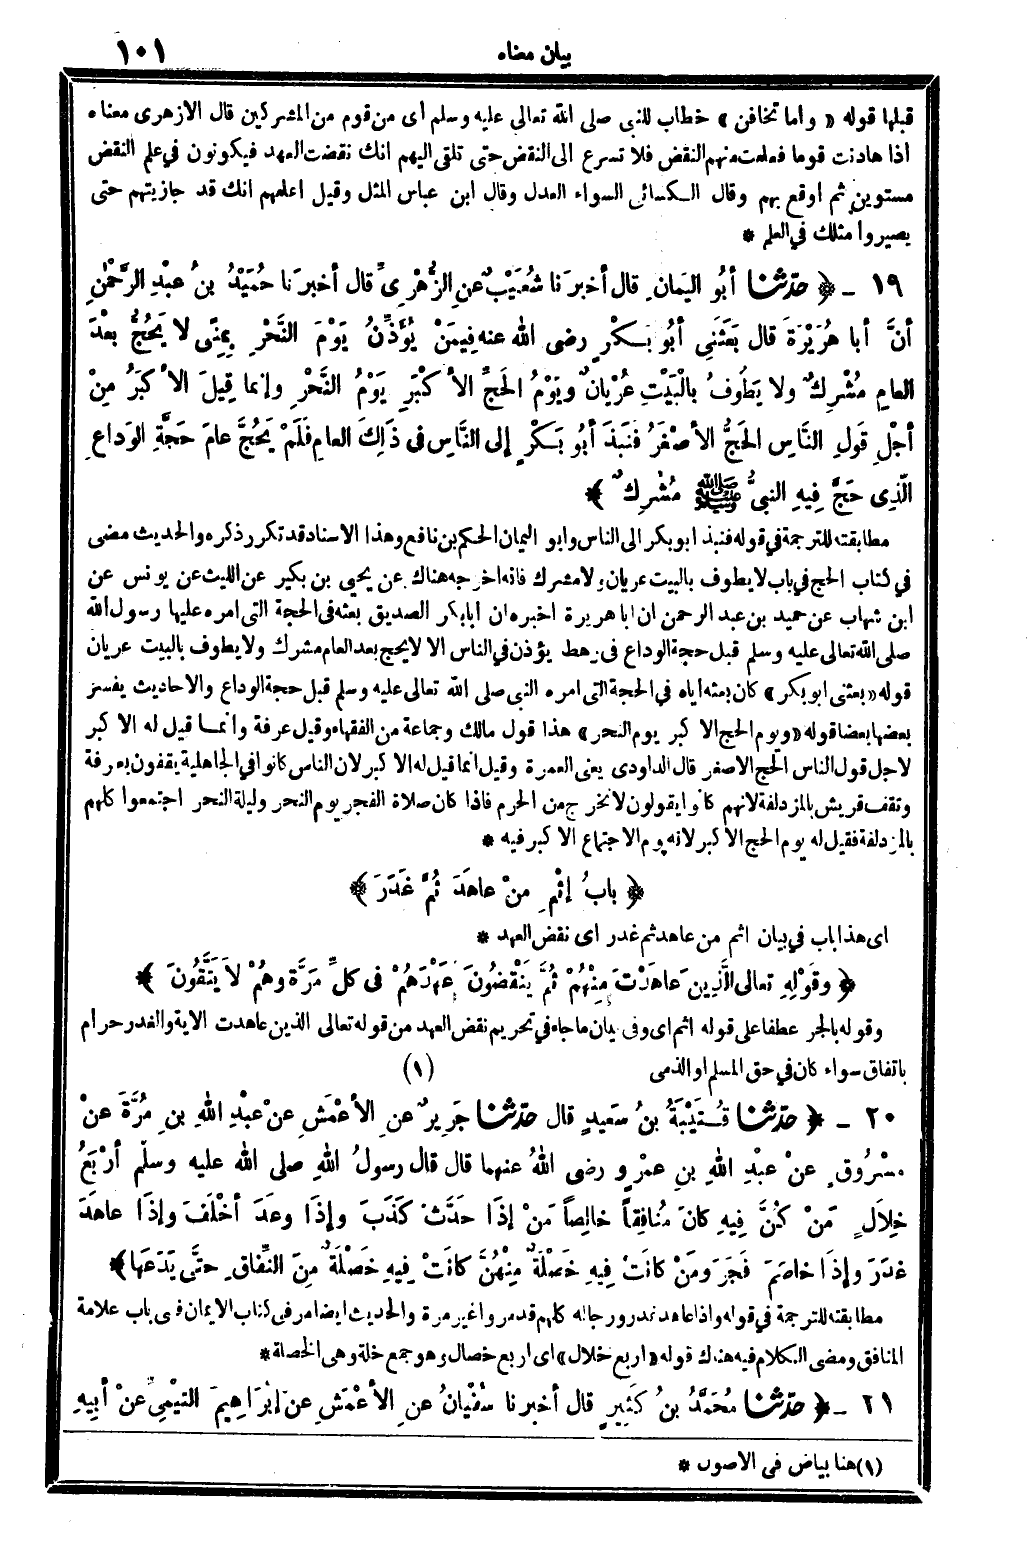 بيان معناه ١٠١
قبلها قوله « واما تخافن » خطاب للنبي صلى الله تعالى عليه وسلم اى من قوم من المشركين قال الازهرى معناه
اذا هادنت قوما فعلمت منهم النقض فلا تسرع الى النقض حتى تلقى اليهم انك نقضت العهد فيكونون في علم النقض
مستوين ثم اوقع بهم وقال الكسائى السواء العدل وقال ابن عباس المثل وقيل اعلمهم انك قد جازيتهم حتى
يصيروا مثلك في العلم *
١٩ ـ ﴿ حَدَّثَنَا أَبُو اليَمَانِ قال أخبرَنا شُعَيْبٌ عنِ الزُّهْرِيِّ قال أخبرَنا حُمَيْدُ بنُ عبْدِ الرَّحْمٰنِ
أنَّ أبا هُرَيْرَةَ قال بَعَثَنِى أبُو بَكْرٍ رضى الله عنه فِيمَنْ يُؤَذِّنُ يَوْمَ النَّحْرِ بِمِنًى لا يَحُجُّ بعْدَ
العامِ مُشْرِكٌ ولا يَطُوفُ بالْبَيْتِ عُرْيانٌ ويَوْمُ الحَجِّ الأكْبَرِ يَوْمُ النَّحْرِ وإنما قِيلَ الأكبَرُ مِنْ
أجْلِ قَولِ النَّاسِ الحَجُّ الأصْغَرُ فَنَبَذَ أبُو بَكْرٍ إلى النَّاسِ فى ذَالِكَ العامِ فَلَمْ يَحُجَّ عامَ حَجَّةِ الوَداعِ
الَّذِى حَجَّ فِيهِ النبىُّ ﷺ مُشْرِكٌ ﴾
مطابقته للترجمة في قوله فنبذ ابو بكر الى الناس وابو اليمان الحكم بن نافع وهذا الاسناد قد تكرر ذكره والحديث مضى
في كتاب الحج في باب لا يطوف بالبيت عريان ولا مشرك فانه اخرجه هناك عن يحيى بن بكير عن الليث عن يونس عن
ابن شهاب عن حميد بن عبد الرحمن ان ابا هريرة اخبره ان ابا بكر الصديق بعثه في الحجة التي امره عليها رسول الله
صلى الله تعالى عليه وسلم قبل حجة الوداع في رهط يؤذن في الناس الا لا يحج بعد العام مشرك ولا يطوف بالبيت عريان
قوله « بعثنى ابو بكر » كان بعثه اياه في الحجة التى امره النبى صلى الله تعالى عليه وسلم قبل حجة الوداع والاحاديث يفسر
بعضها بعضا قوله « ويوم الحج الاكبر يوم النحر » هذا قول مالك وجماعة من الفقهاء وقيل عرفة وانما قيل له الاكبر
لاجل قول الناس الحج الاصغر قال الداودى يعنى العمرة وقيل انما قيل له الاكبر لان الناس كانوا في الجاهلية يقفون بعرفة
وتقف قريش بالمزدلفة لانهم كانوا يقولون لا نخرج من الحرم فاذا كان صلاة الفجر يوم النحر وليلة النحر اجتمعوا كلهم
بالمزدلفة فقيل له يوم الحج الاكبر لانه يوم الاجتماع الاكبر فيه *
﴿ بابُ إثْمِ منْ عاهَدَ ثُمَّ غَدَرَ ﴾
اى هذا باب في بيان اثم من عاهد ثم غدر اى نقض العهد *
﴿ وقَوْلِهِ تعالى الَّذِينَ عاهَدْتَ مِنْهُمْ ثُمَّ يَنْقُضُونَ عَهْدَهُمْ فى كلِّ مَرَّةٍ وهُمْ لاَ يَتَّقُونَ ﴾
وقوله بالجر عطفا على قوله اثم اى وفى بيان ما جاء في تحريم نقض العهد من قوله تعالى الذين عاهدت الآية والغدر حرام
باتفاق سواء كان في حق المسلم او الذمى (١)
٢٠ ـ ﴿ حَدَّثَنَا قُتَيْبَةُ بنُ سَعيدٍ قال حَدَّثَنَا جَرِيرٌ عنِ الأعْمَشِ عنْ عبْدِ اللهِ بنِ مُرَّةَ عنْ
مسْرُوقٍ عنْ عبْدِ اللهِ بنِ عمْرٍو رضى اللهُ عنهما قال قال رسولُ اللهِ صلى الله عليه وسلَّم أرْبَعُ
خِلالٍ مَنْ كُنَّ فِيهِ كانَ مُنافِقاً خالِصاً مَنْ إذَا حَدَّثَ كَذَبَ وإذَا وعَدَ أخْلَفَ وإذَا عاهَدَ
غدَرَ وإذَا خاصَمَ فَجَرَ ومَنْ كانَتْ فِيهِ خَصْلَةٌ مِنْهُنَّ كانَتْ فِيهِ خَصْلَةٌ مِنَ النِّفاقِ حتَّى يَدَعَها ﴾
مطابقته للترجمة في قوله واذا عاهد غدر ورجاله كلهم قد مروا غير مرة والحديث ايضا مر في كتاب الايمان فى باب علامة
المنافق ومضى الكلام فيه هناك قوله « اربع خلال » اى اربع خصال وهو جمع خلة وهى الخصلة *
٢١ ـ ﴿ حَدَّثَنَا مُحَمَّدُ بنُ كَثِيرٍ قال أخبرنا سُفْيانُ عنِ الأعْمَشِ عنْ إبْرَاهِيمَ التَّيْمِىِّ عنْ أبِيهِ
(١) هنا بياض فى الاصول *